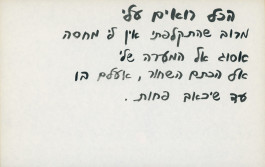 הכל רואים עלי
מרוב שהתקלפתי אין לי מחסה
אסוג אל המערה שלי
אל הכתם השחור, אעלם בו
עד שיכאב פחות.